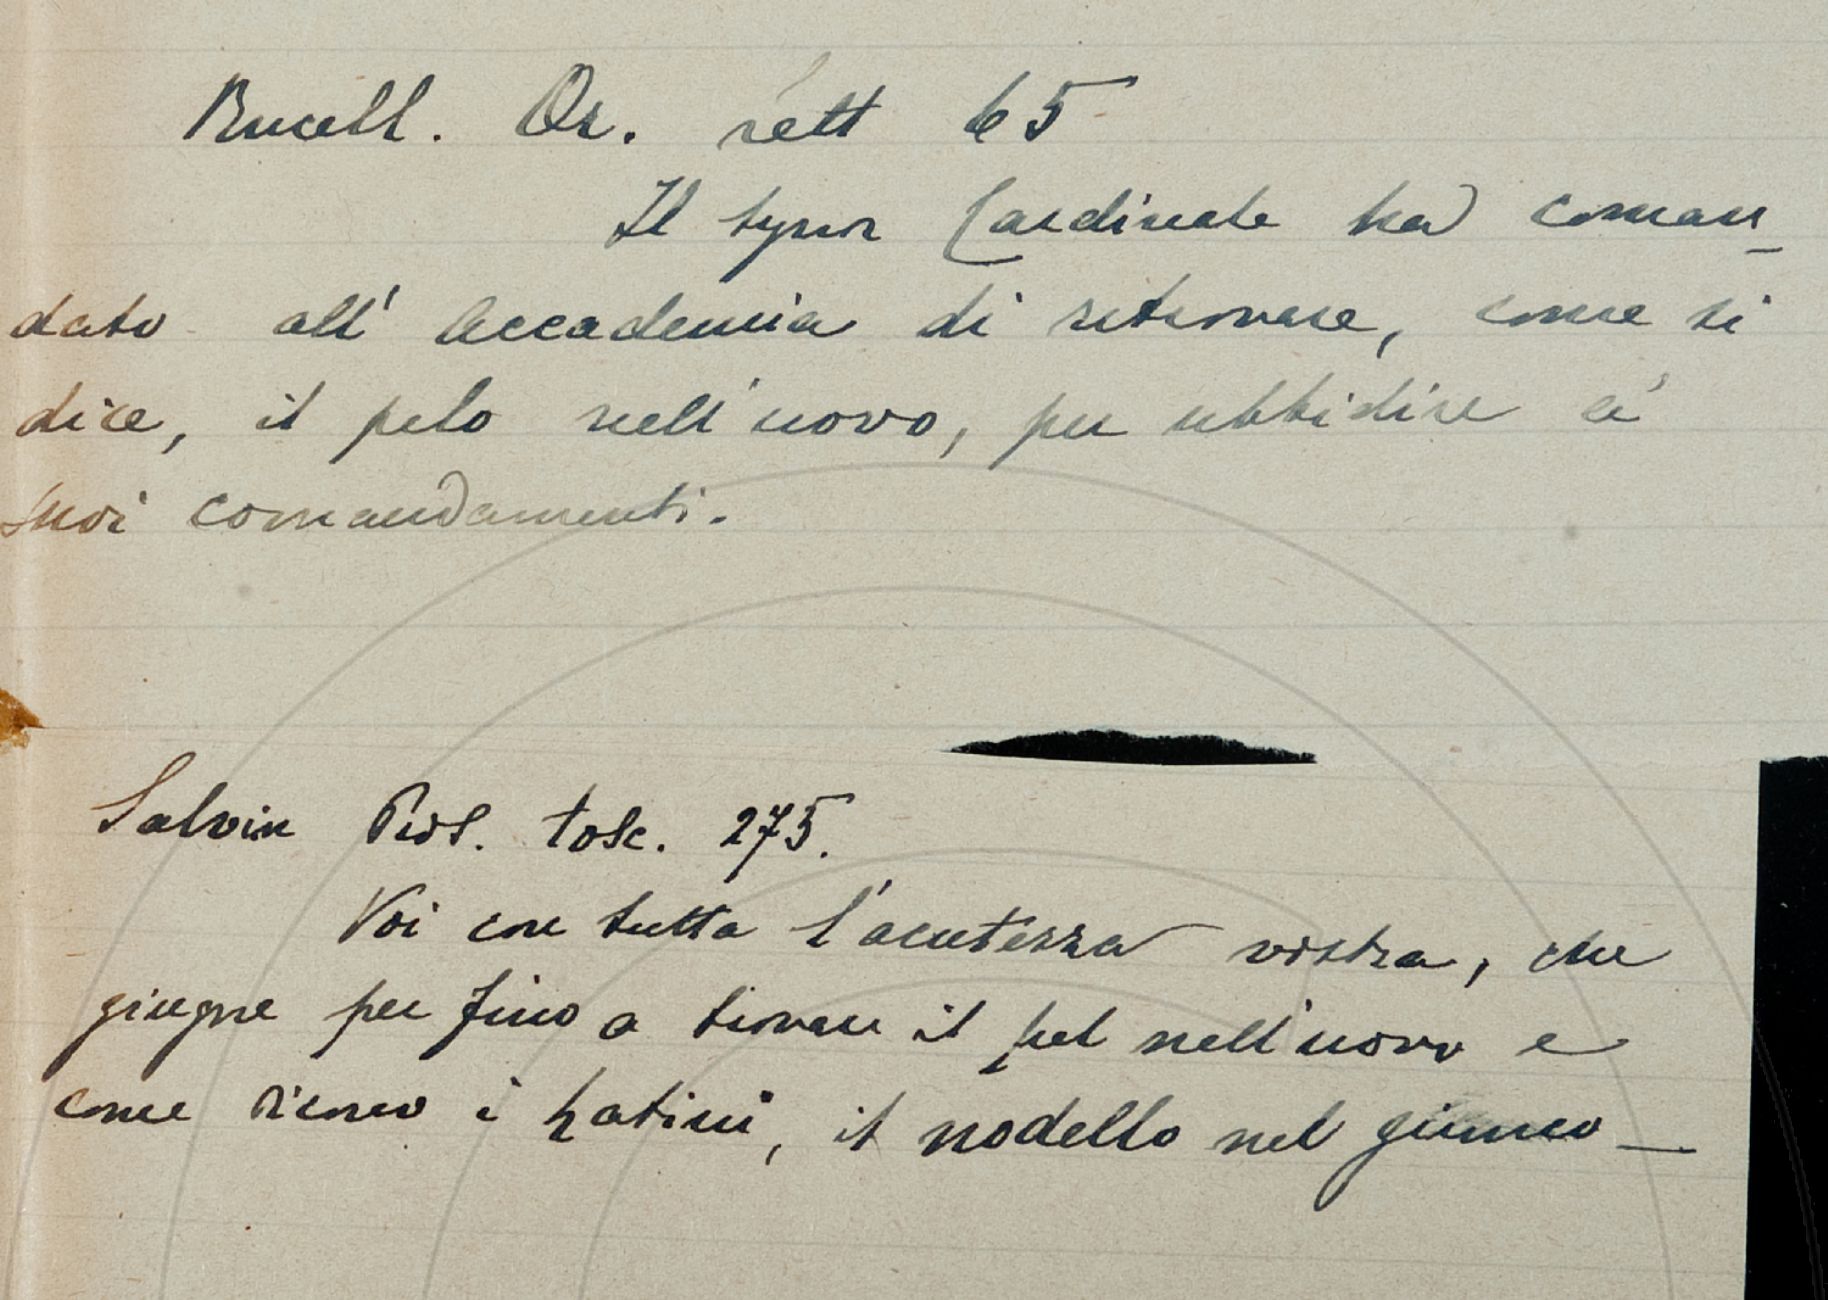 Rucell. Or. rett 65
Il signor Cardinale ha coman-
dato all' Accademia di ritrovare, come si
dice, il pelo nell'uovo, per ubbidire a'
suoi comandamenti.
Salvin Pros. tosc. 275.
Voi con tutta l'acutezza vostra, che
giugne per fino a trovare il pel nell'uovo e
come dicono i Latini, il nodello nel giunco —